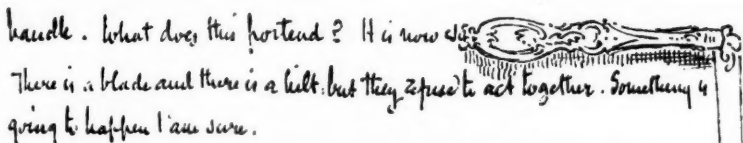 handle. What does this portend? It is now
There is a blade and there is a hilt but they refuse to act together. Something is
going to happen I am sure.